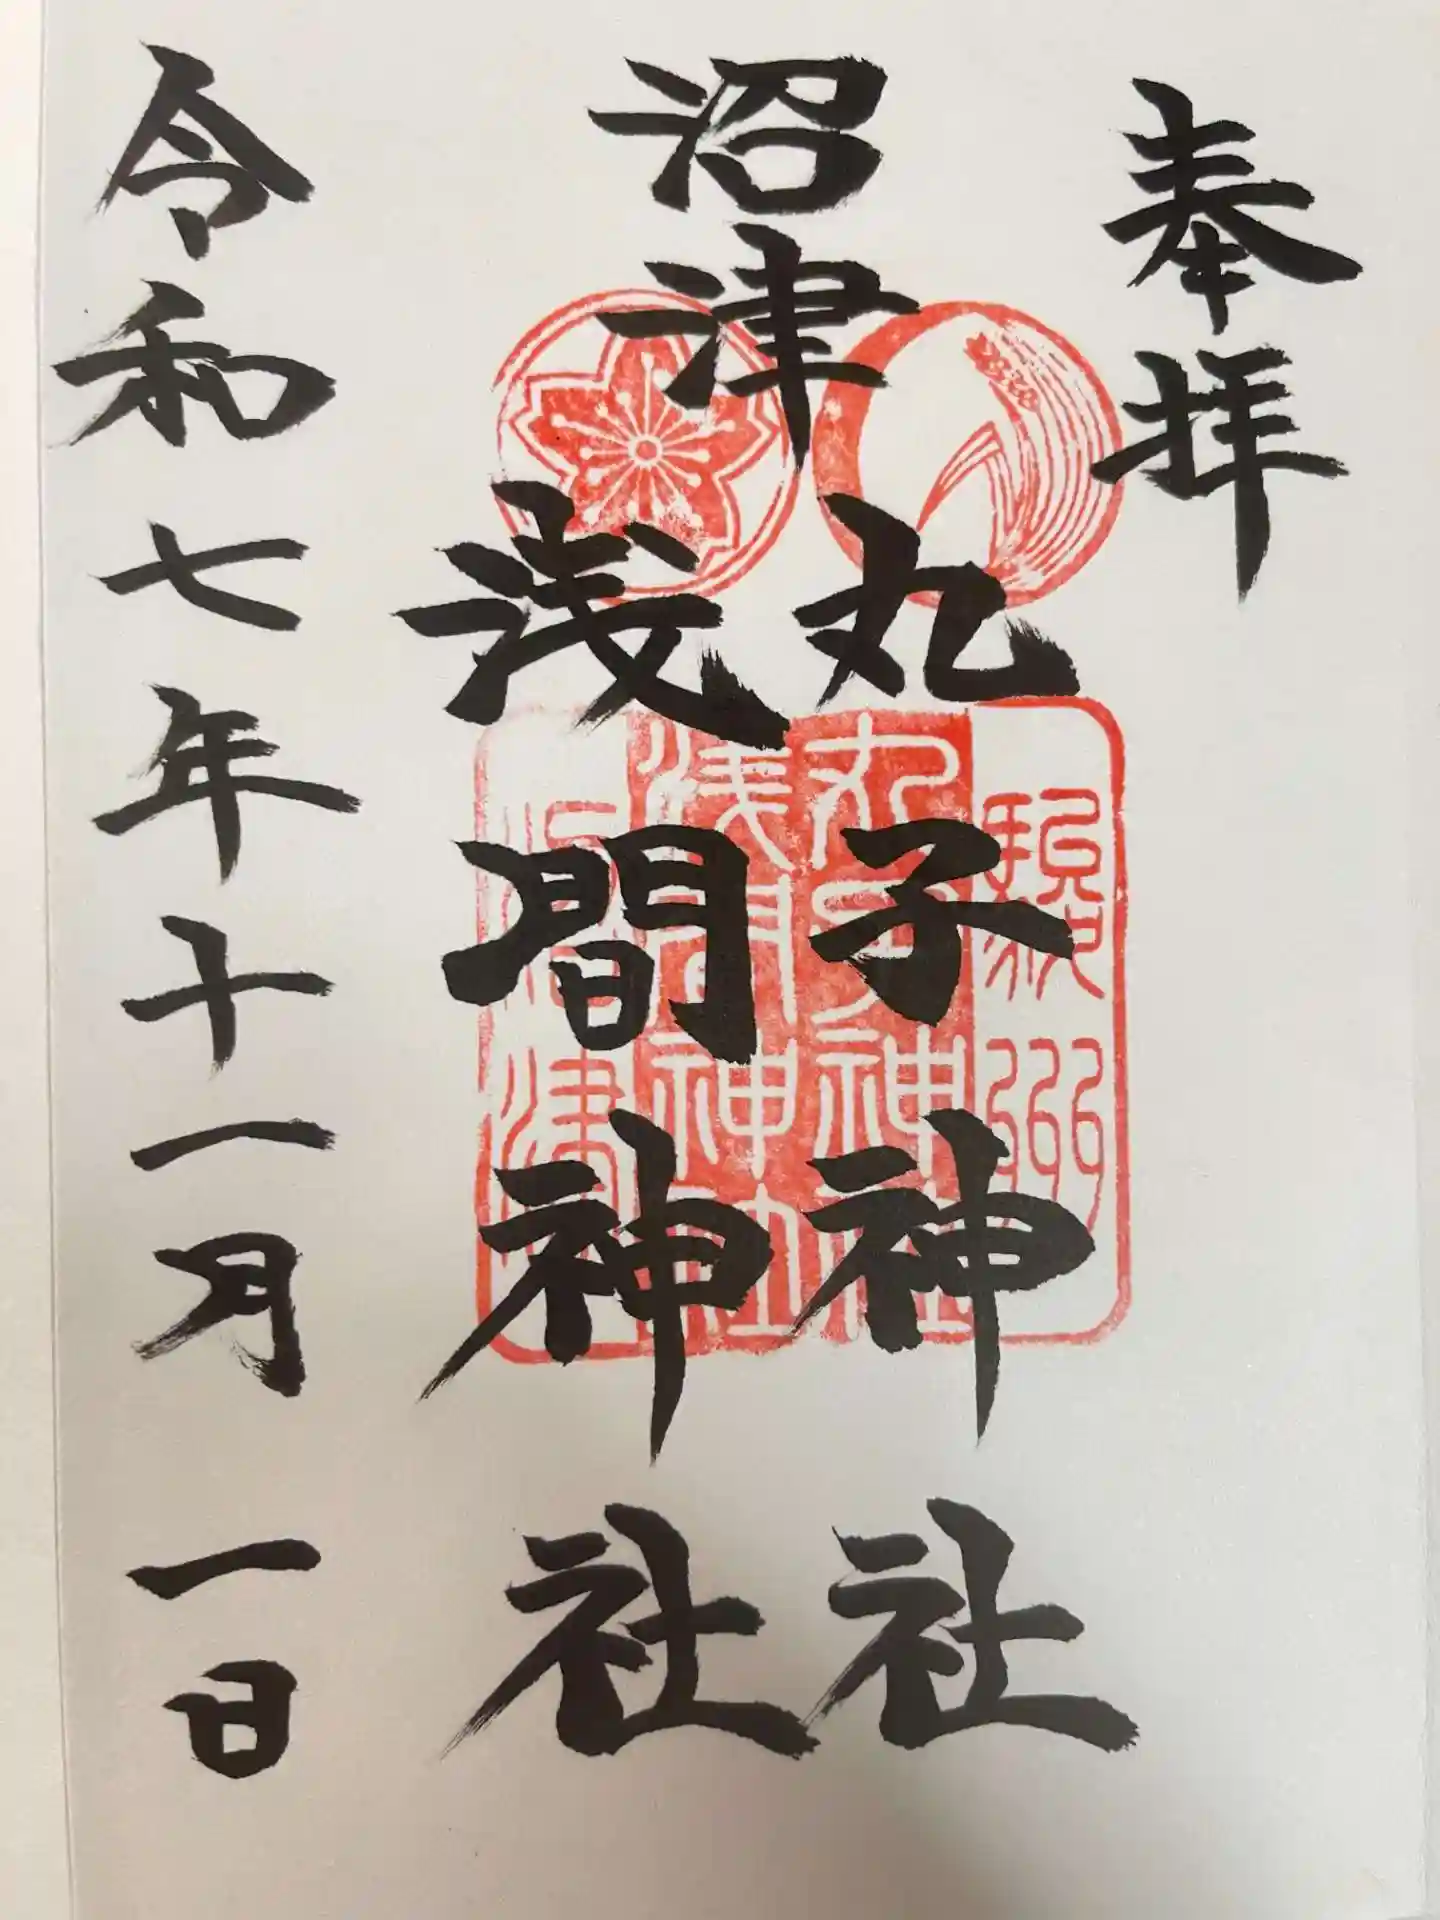 奉拝
沼津
丸子神社
浅間神社
令和七年十一月一日
駿州
丸子神社
浅間神社
沼津